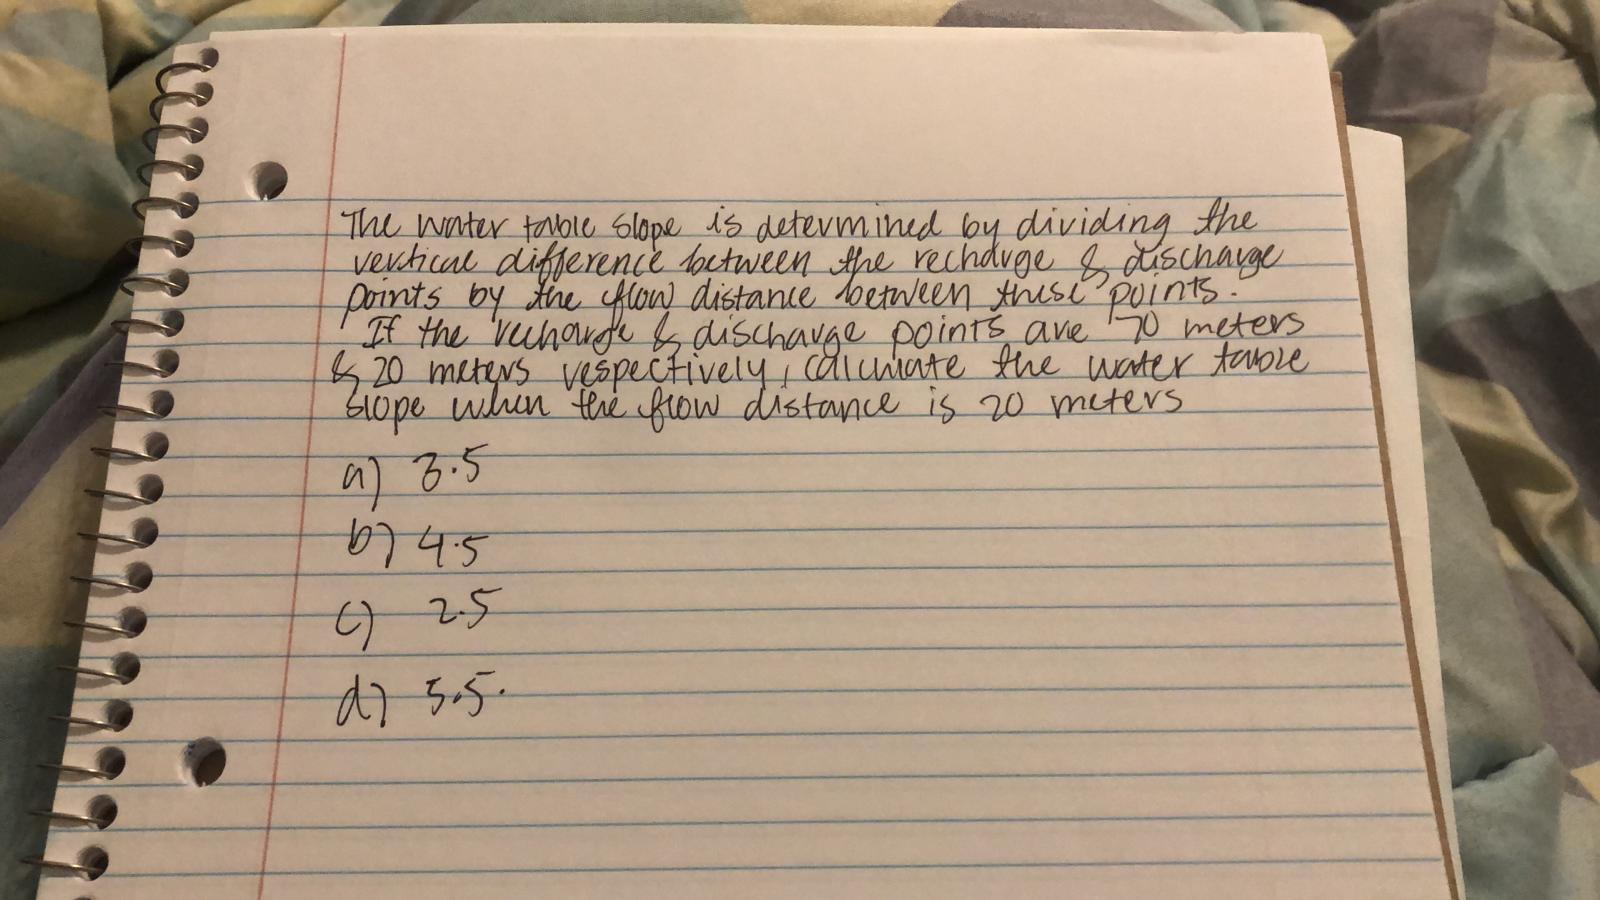 The water table slope is determined by dividing the
vertical difference between the recharge & discharge
points by the flow distance between these points.
If the recharge & discharge points are 70 meters
& 20 meters respectively, calculate the water table
slope when the flow distance is 20 meters
a) 3.5
b) 4.5
c) 2.5
d) 5.5.